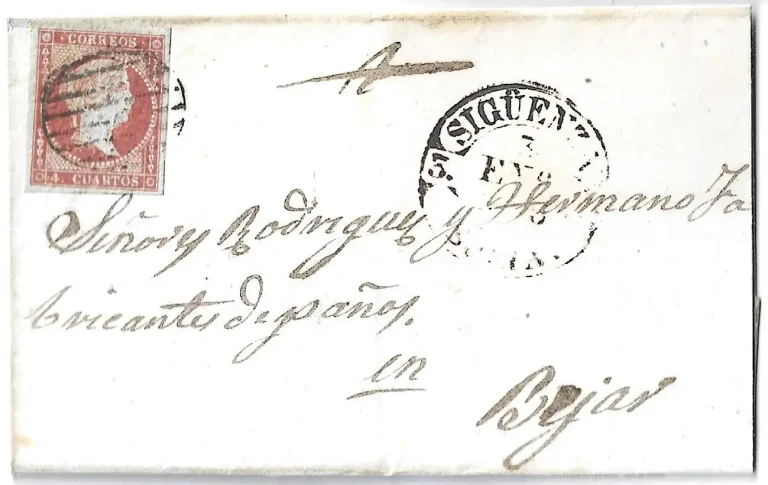 CORREOS
4 CUARTOS
SIGÜENZA
3
ENE
Señores Rodriguez y Hermano Fa
bricantes de paños.
en
Bejar